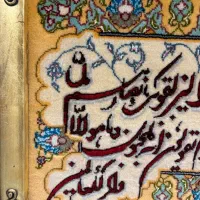 ليزلقونك بابصارهم لما
ويقولون انه لمجنون وما هو الا
ذكر للعالمين